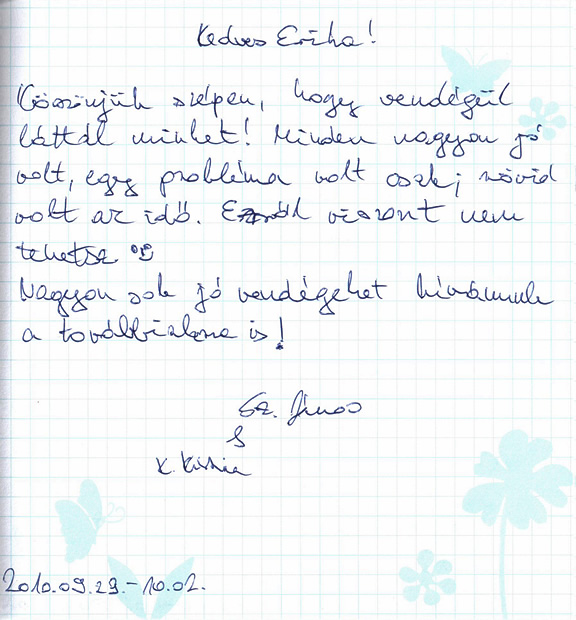 Kedves Erika!
Köszönjük szépen, hogy vendégül
láttál minket! Minden nagyon jó
volt, egy probléma volt csak; rövid
volt az idő. Erről viszont nem
tehetsz
Nagyon sok jó vendégeket kívánunk
a továbbiakra is!
Sz. János
&
K. Kinia
2010.09.29.-10.02.